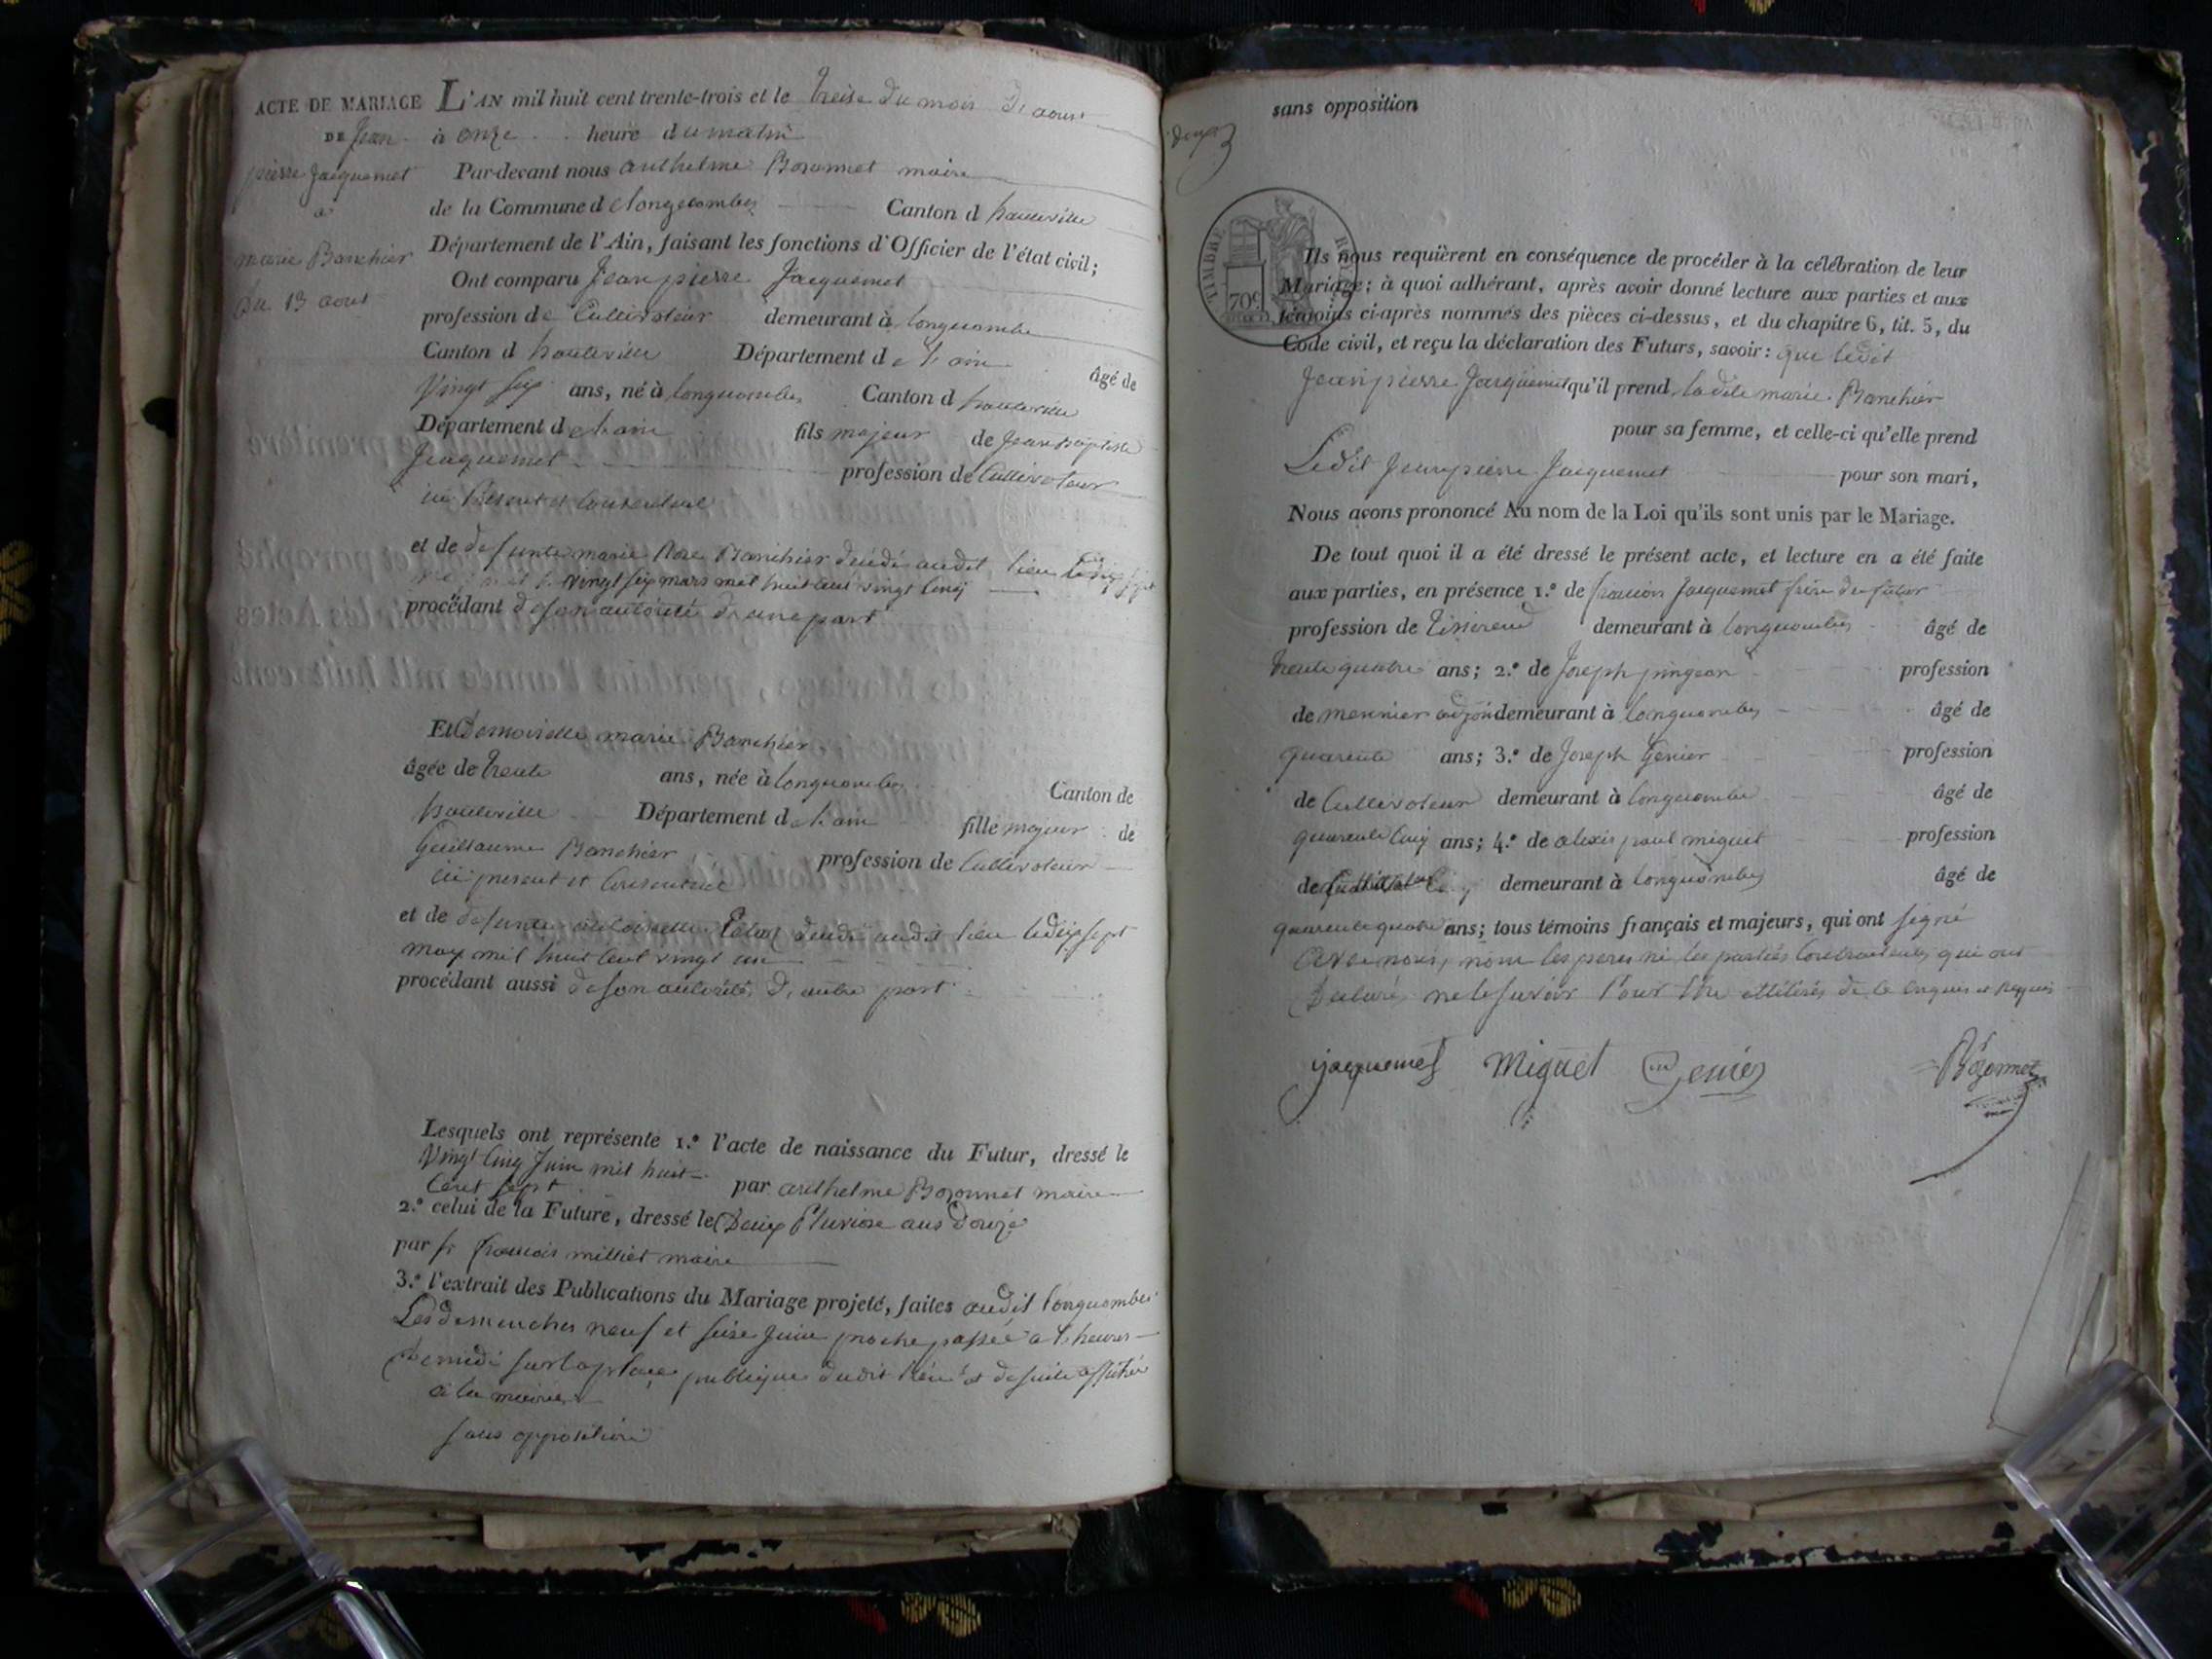 ACTE DE MARIAGE
DE Jean
pierre Jacquemet
a
marie Banchier
du 13 aout
L'AN mil huit cent trente-trois et le treise du mois d'aout
à onze heure du matin
Par-devant nous anthelme Bozonnet maire
de la Commune de longecombes Canton d hauteville
Département de l'Ain, faisant les fonctions d'Officier de l'état civil;
Ont comparu Jean pierre Jacquemet
profession de Cultivateur demeurant à longecombe
Canton d hauteville Département de l'ain âgé de
Vingt six ans, né à longecombes Canton d hauteville
Département de l'ain fils majeur de Jean Baptiste
Jacquemet profession de Cultivateur
ici présent et Consentant
et de defunte marie Rose Banchier décédé audit lieu
vingt six mars mil huit cent vingt cinq
procédant de son autorité d'une part
Et Demoiselle marie Banchier
âgée de trente ans, née à longecombes Canton de
hauteville Département de l'ain fille majeur de
Guillaume Banchier profession de Cultivateur
ici present et Consentant
et de defunte décédé audit lieu le dix sept
may mil huit cent vingt un
procédant aussi de son autorité d'autre part
Lesquels ont représente 1.° l'acte de naissance du Futur, dressé le
Vingt cinq Juin mil huit
Cent sept par anthelme Bozonnet maire
2.° celui de la Future, dressé le Deux Pluviose ans douze
par françois milliet maire
3.° l'extrait des Publications du Mariage projeté, faites audit longecombes
Les dimenches neuf et seise Juin proche passée a l'heures
De midi sur la place publique dudit lieu et de suite affichée
à la mairie
sans opposition
sans opposition
TIMBRE ROYAL
70c
Ils nous requièrent en conséquence de procéder à la célébration de leur
Mariage; à quoi adhérant, après avoir donné lecture aux parties et aux
témoins ci-après nommés des pièces ci-dessus, et du chapitre 6, tit. 5, du
Code civil, et reçu la déclaration des Futurs, savoir: que ledit
Jean pierre Jacquemet qu'il prend ladite marie Banchier
pour sa femme, et celle-ci qu'elle prend
Ledit Jean pierre Jacquemet pour son mari,
Nous avons prononcé Au nom de la Loi qu'ils sont unis par le Mariage.
De tout quoi il a été dressé le présent acte, et lecture en a été faite
aux parties, en présence 1.° de Jacquemet frère du futur
profession de Tisserend demeurant à longecombes âgé de
trente quatre ans; 2.° de Joseph pingeon profession
de meunier adjoin demeurant à longecombes âgé de
quarente ans; 3.° de Joseph Genier profession
de Cultivateur demeurant à longecombe âgé de
quarente cinq ans; 4.° de alexis paul miguet profession
de demeurant à longecombes âgé de
quarente quatre ans; tous témoins français et majeurs, qui ont signé
avec nous, non les peres ni les parties Contractentes qui ont
Déclaré ne le savoir Pour être de ce enquis et requis
jacquemet Miguet Genier Bozonnet